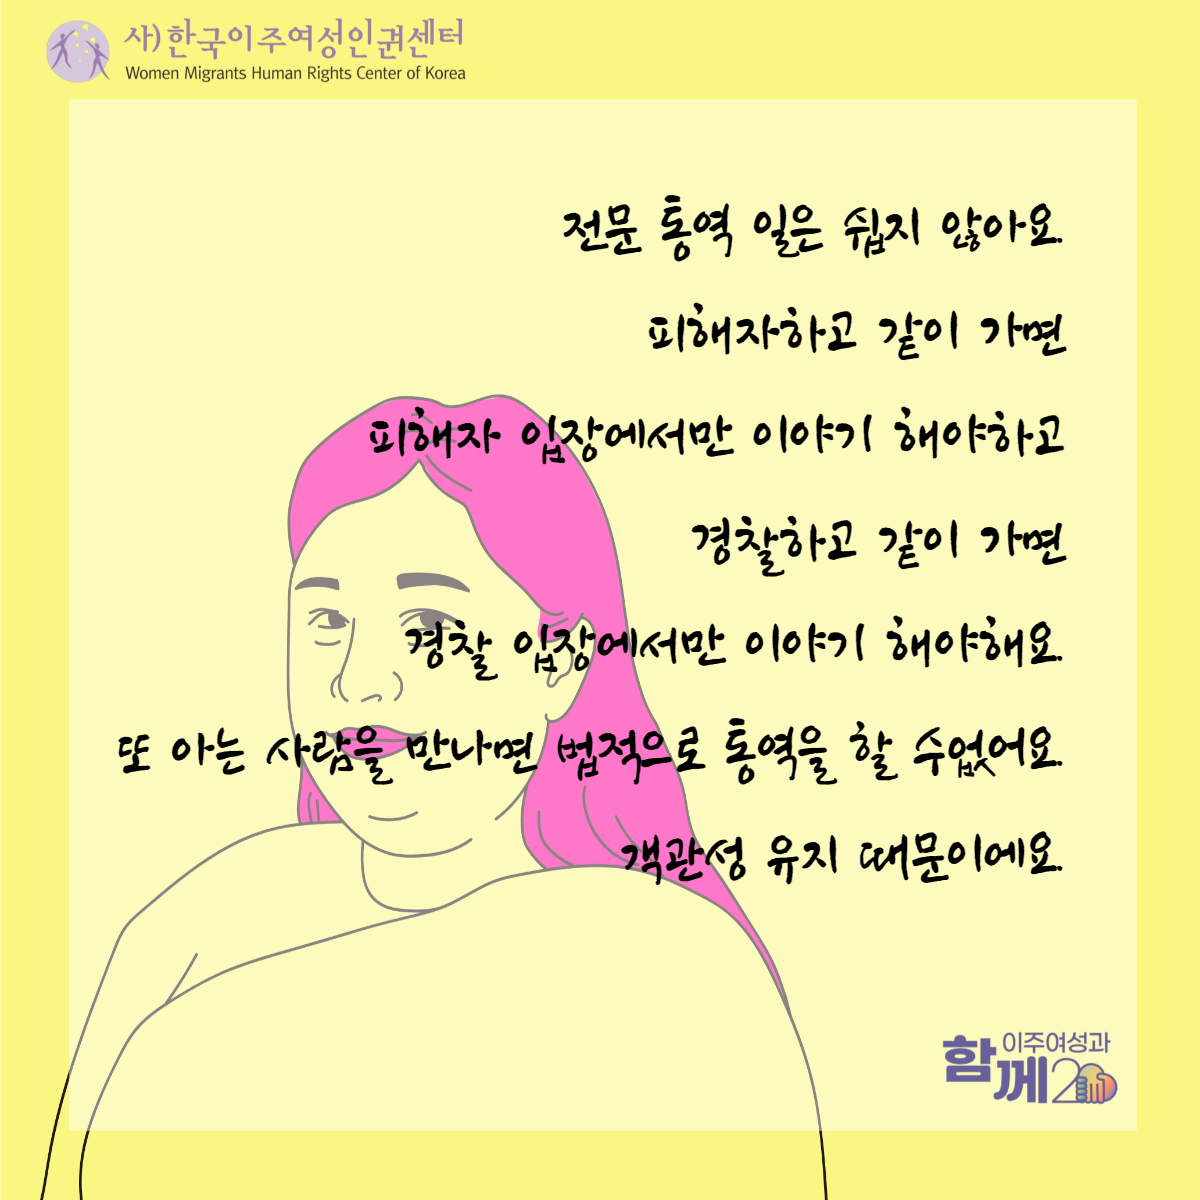 사)한국이주여성인권센터
Women Migrants Human Rights Center of Korea
전문 통역 일은 쉽지 않아요.
피해자하고 같이 가면
피해자 입장에서만 이야기 해야하고
경찰하고 같이 가면
경찰 입장에서만 이야기 해야해요.
또 아는 사람을 만나면 법적으로 통역을 할 수없어요.
객관성 유지 때문이에요.
이주여성과
함께20